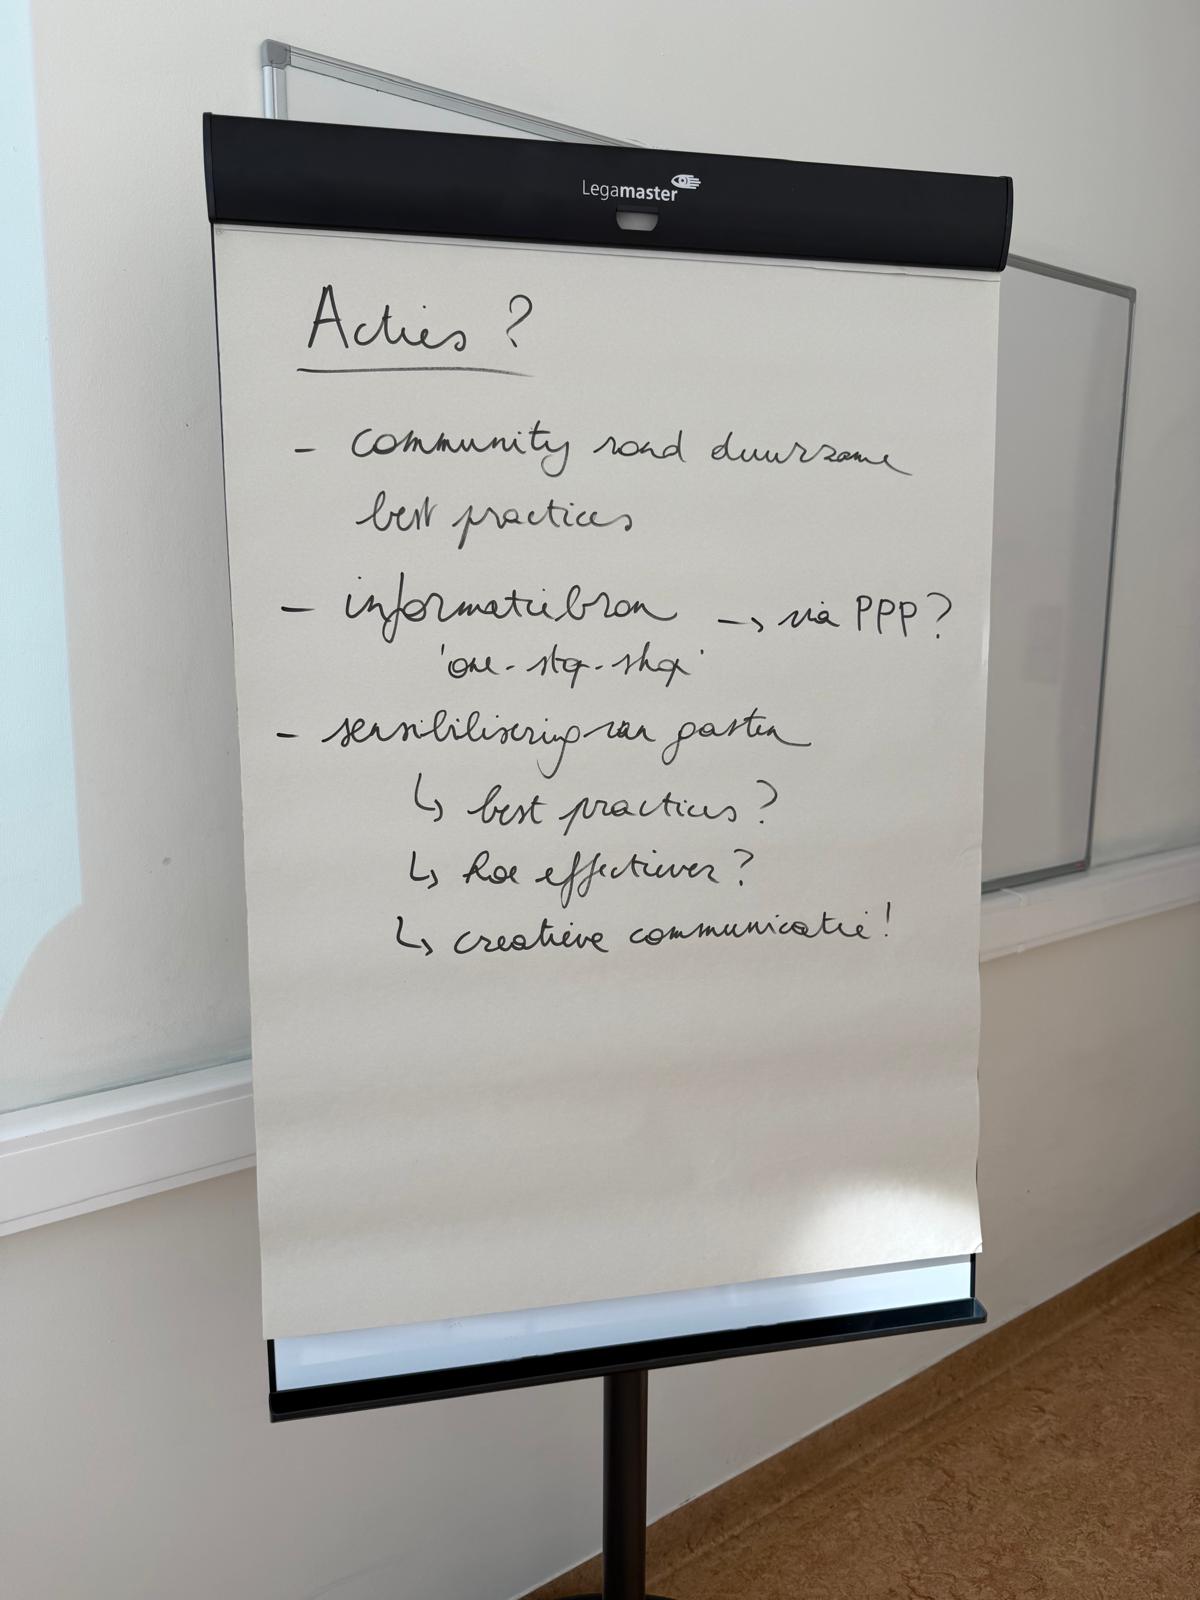 Legamaster
Acties ?
- community rond duurzame
best practices
- informatiebron -> via PPP?
'one-stop-shop'
- sensibilisering van gasten
↳ best practices?
↳ hoe effectiever?
↳ creatieve communicatie!